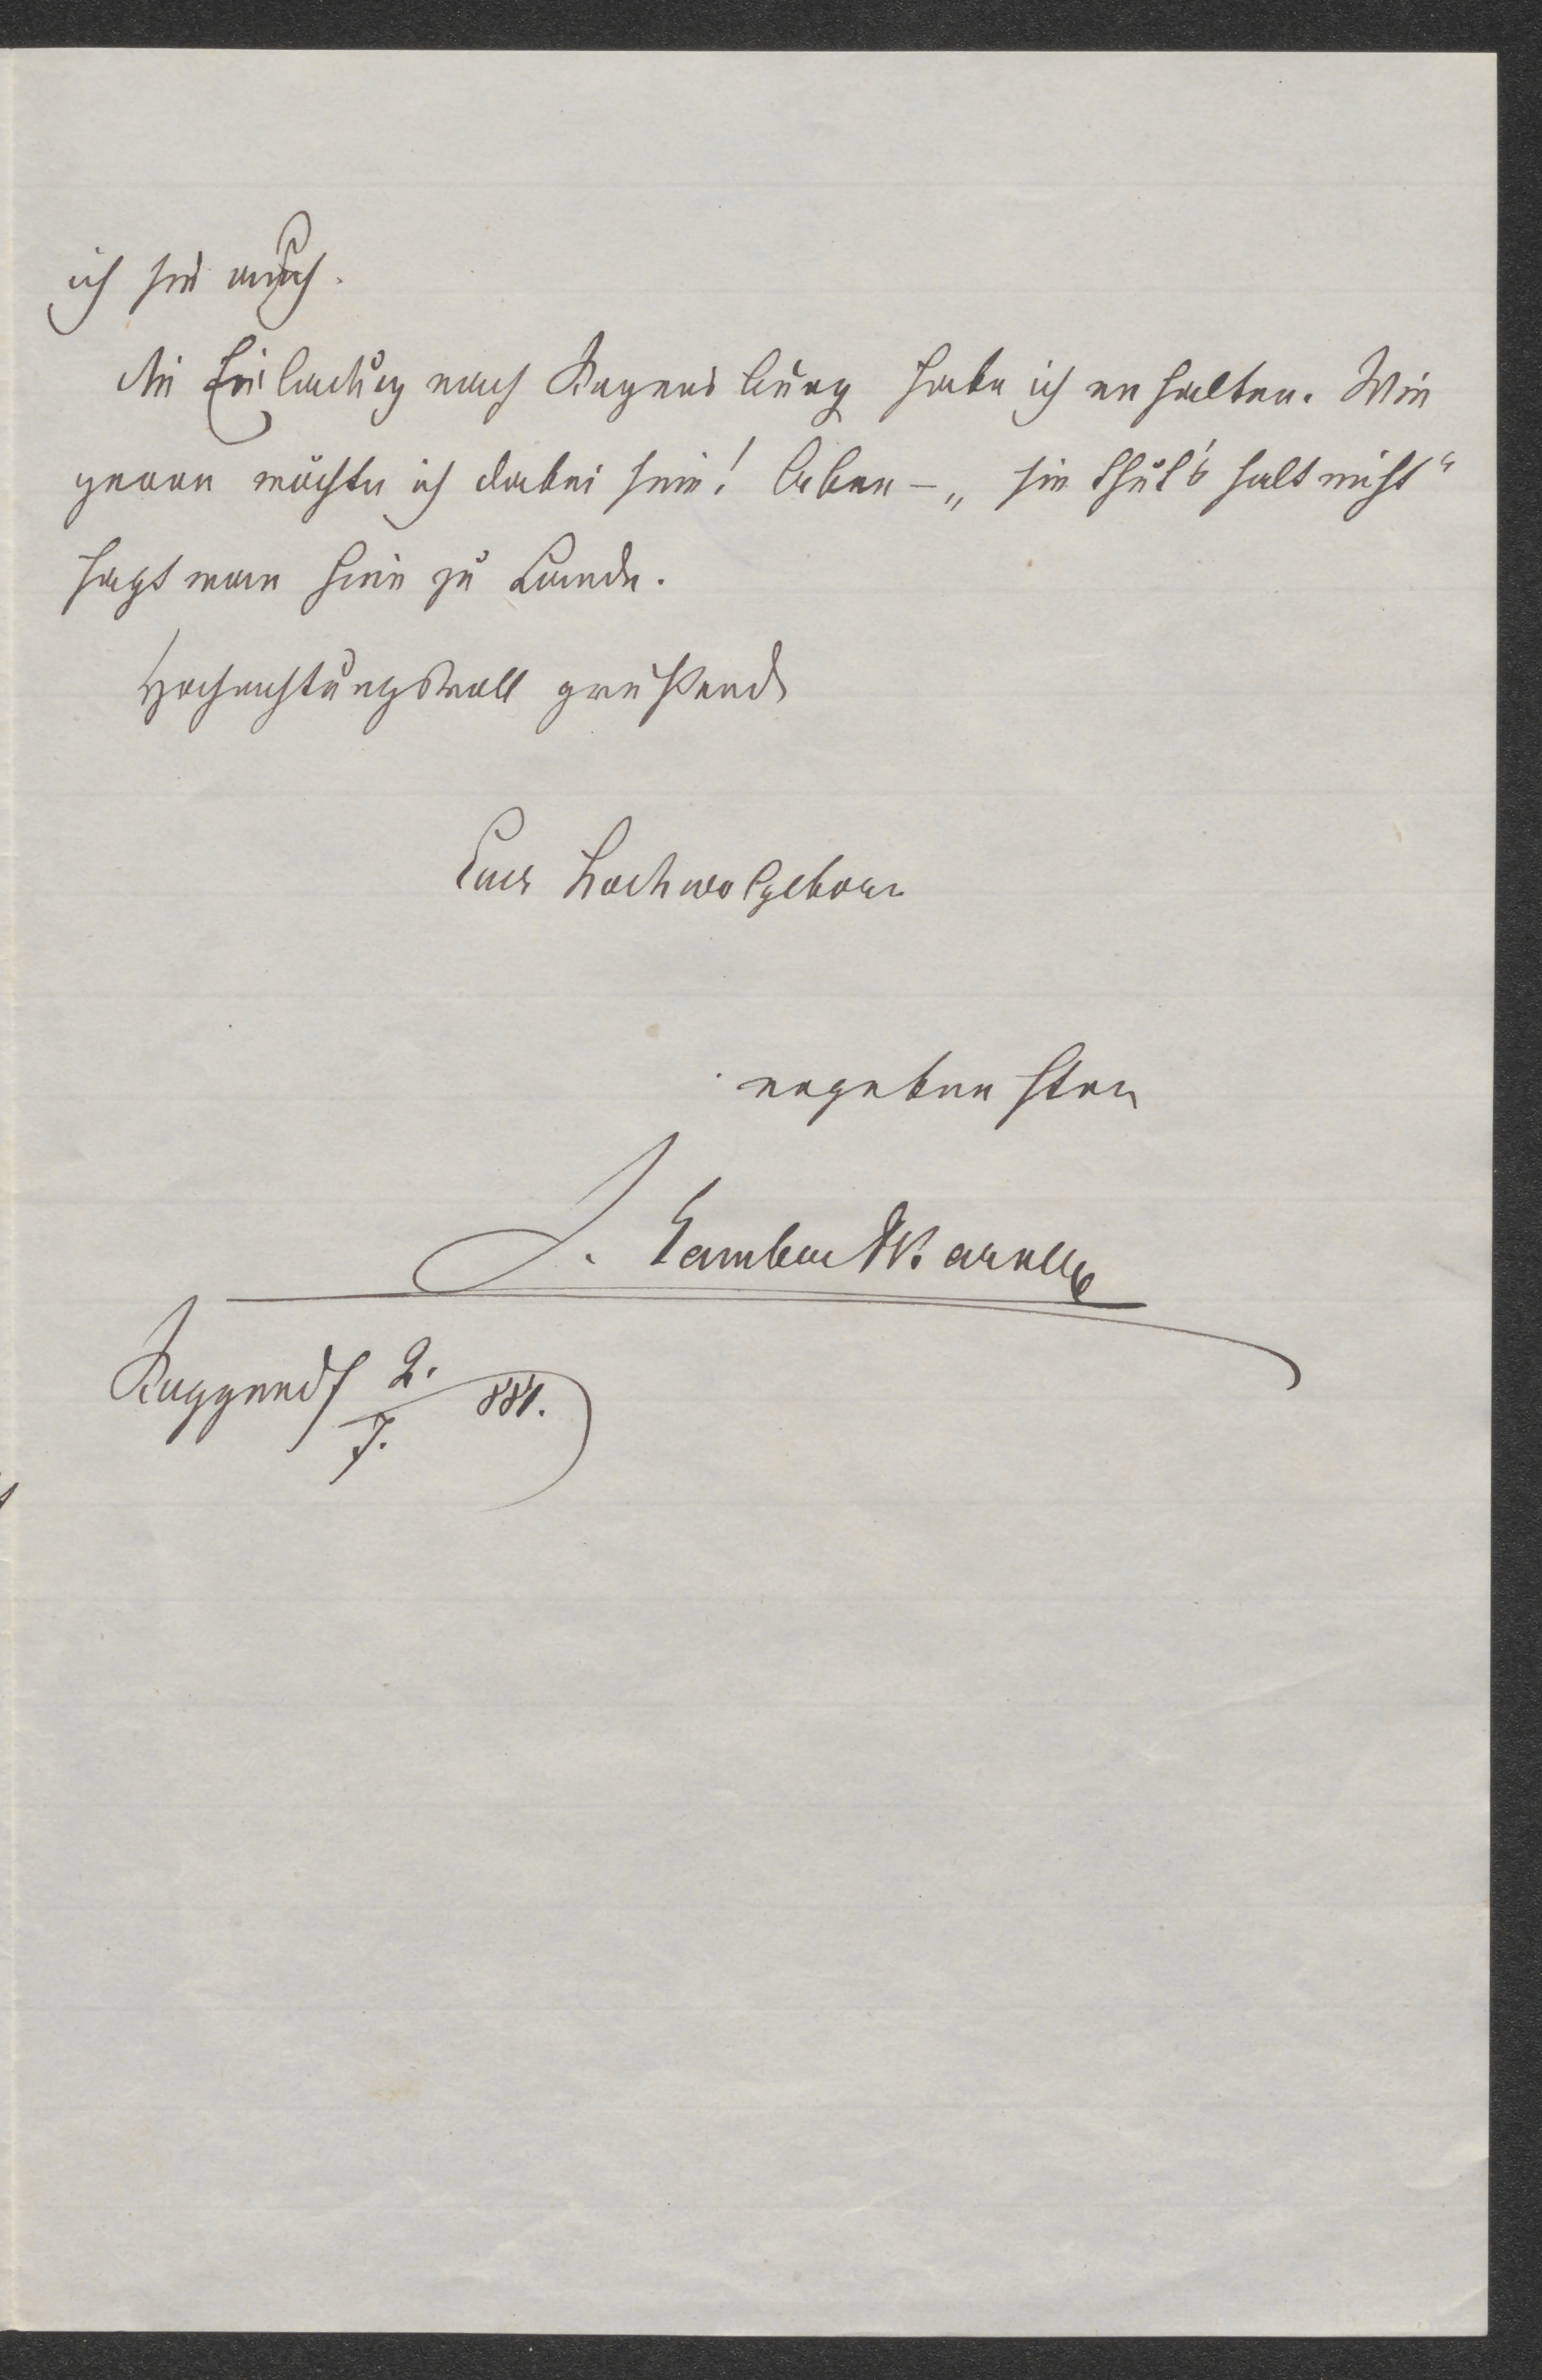 ich sie auch.
die Einladung nach Regensburg habe ich erhalten. Wie
gerne möchte ich dabei sein! Aber – „sie thut's halt nicht“
sagt man hier zu Lande.
Hochachtungsvoll grüßend
Euer Hochwolgeboren
ergebenster
J. Lambert
2.
7. 881.